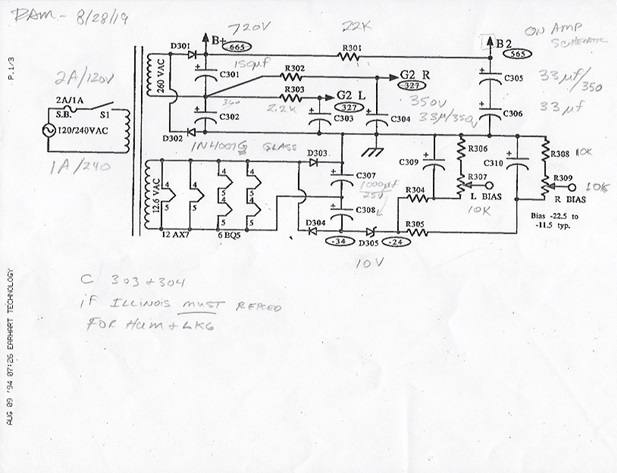 RAM- 8/28/19
P.1/3
720V
22K
ON AMP
SCHEMATIC
D301
B+
665
R301
B2
565
150µf
R302
G2 R
327
C301
260 VAC
2A/120V
C305
33µf/350
R303
G2 L
327
350V
33µf/350
360
2.2K
C302
C303
C304
C306
33µf
2A/1A
S.B.
S1
120/240VAC
D302
1N4007G GLASS
1A/240
R306
C310
R308
10K
D303
C309
12.6 VAC
4
4
4
4
5
5
5
5
4
4
5
5
C307
1000µf
25V
R307
L BIAS
R309
R BIAS
10K
10K
R304
C308
Bias -22.5 to
-11.5 typ.
D304
R305
12 AX7
6 BQ5
-34
D305
-24
10V
C 303+304
if ILLINOIS MUST REPLACED
FOR HUM + LKG
AUG 09 '94 07:26 EARHART TECHNOLOGY